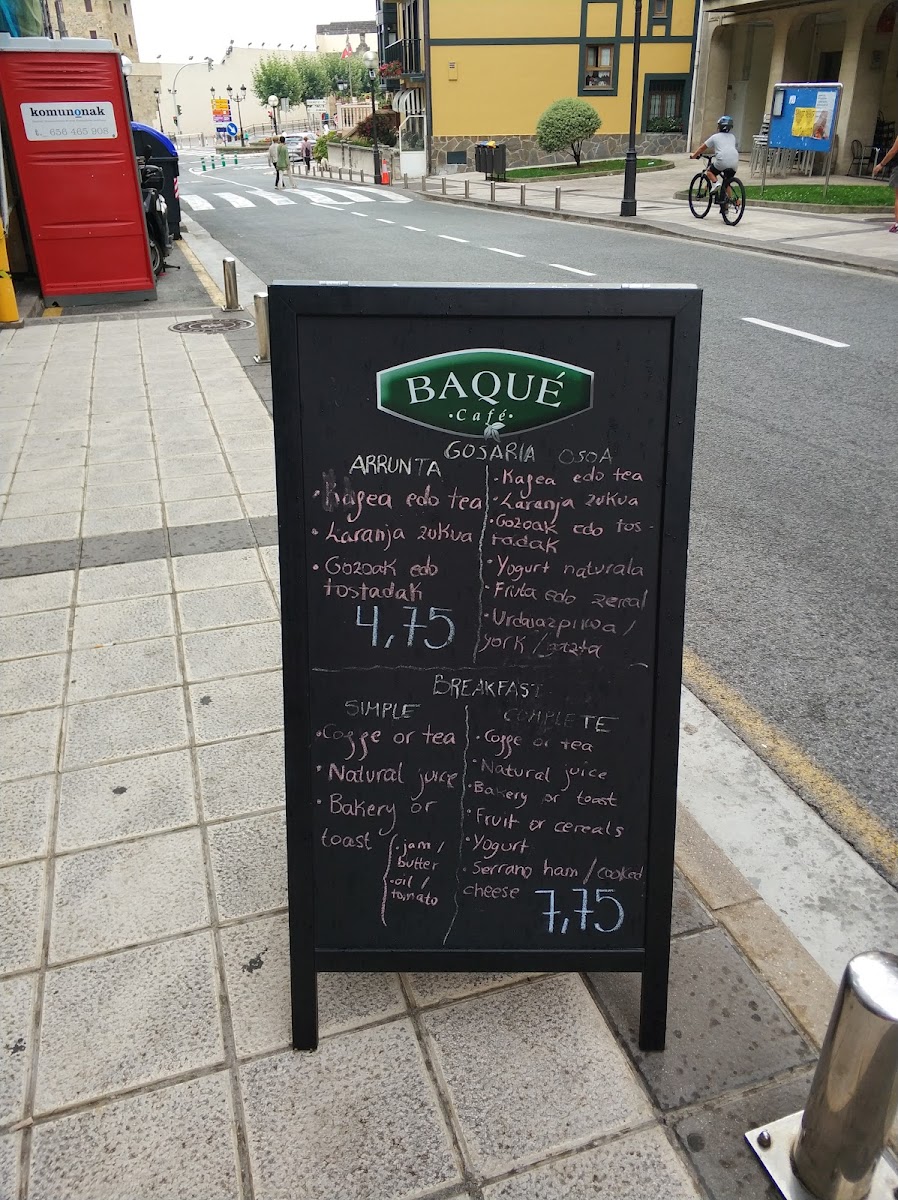 komunak
t. 656 465 908
BAQUÉ
·Café·
GOSARIA
ARRUNTA
· Kafea edo tea
· Laranja zukua
· Gozoak edo
tostadak
4,75
OSOA
· Kafea edo tea
· Laranja zukua
· Gozoak edo tos-
tadak
· Yogurt naturala
· Fruta edo zereal
· Urdaiazpikoa /
york / gazta
BREAKFAST
SIMPLE
· Coffe or tea
· Natural juice
· Bakery or
toast
· jam /
butter
· oil /
tomato
COMPLETE
· Coffe or tea
· Natural juice
· Bakery or toast
· Fruit or cereals
· Yogurt
· Serrano ham / cooked
cheese
7,75